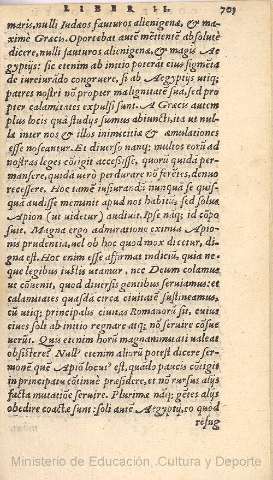 LIBER II.
701
maris, nulli Iudæos fauturos alienigenæ, & ma-
xime Græcis. Oportebat autē mētientē absolutè
dicere, nulli fauturos alienigenæ, & magis Æ-
gyptijs: sic etenim ab initio poterat eius figmēta
de iureiurādo congruere, si ab Ægyptijs utiq;
patres nostri nō propter malignitatē sua, sed pro
pter calamitates expulsi sunt. A Græcis autem
plus locis quā studijs sumus abiuncti, ita ut nul-
la inter nos & illos inimicitia & æmulationes
esse noscantur. Et diuerso nanq; multos eorū ad
nostras leges cōtigit accessisse, quorū quidā per-
mansere, quidā uerò perdurare nō ferētes, denuo
recessere. Hoc tamē iusiurandū nunquā se quis-
quā audisse meminit apud nos habitū, sed solus
Apion (ut uidetur) audiuit. Ipse naq; id cōpo
suit. Magna ergo admiratione eximia Apio-
nis prudentia, uel ob hoc quod mox dicetur, di-
gna est. Hoc enim esse affirmat indiciū, quia ne-
que legibus iustis utamur, nec Deum colamus
ut cōuenit, quod diuersis gentibus seruiamus: et
calamitates quasdā circa ciuitatē sustineamus,
cū utiq; principalis ciuitas Romanorū sit, cuius
ciues soli ab initio regnare atq; nō seruire cōsue
uerūt. Quis etenim horū magnanimitati ualeat
obsistere? Null' etenim aliorū potest dicere ser-
monē quē Apiō locut' est, quādo paucis cōtigit
in principatu cōtinuè præsidere, et nō rursus alijs
facta mutatiōe seruire. Plurimæ nāq; gētes alijs
obedire coactæ sunt: soli autē Ægyptij, eo quod
refug
Ministerio de Educación, Cultura y Deporte